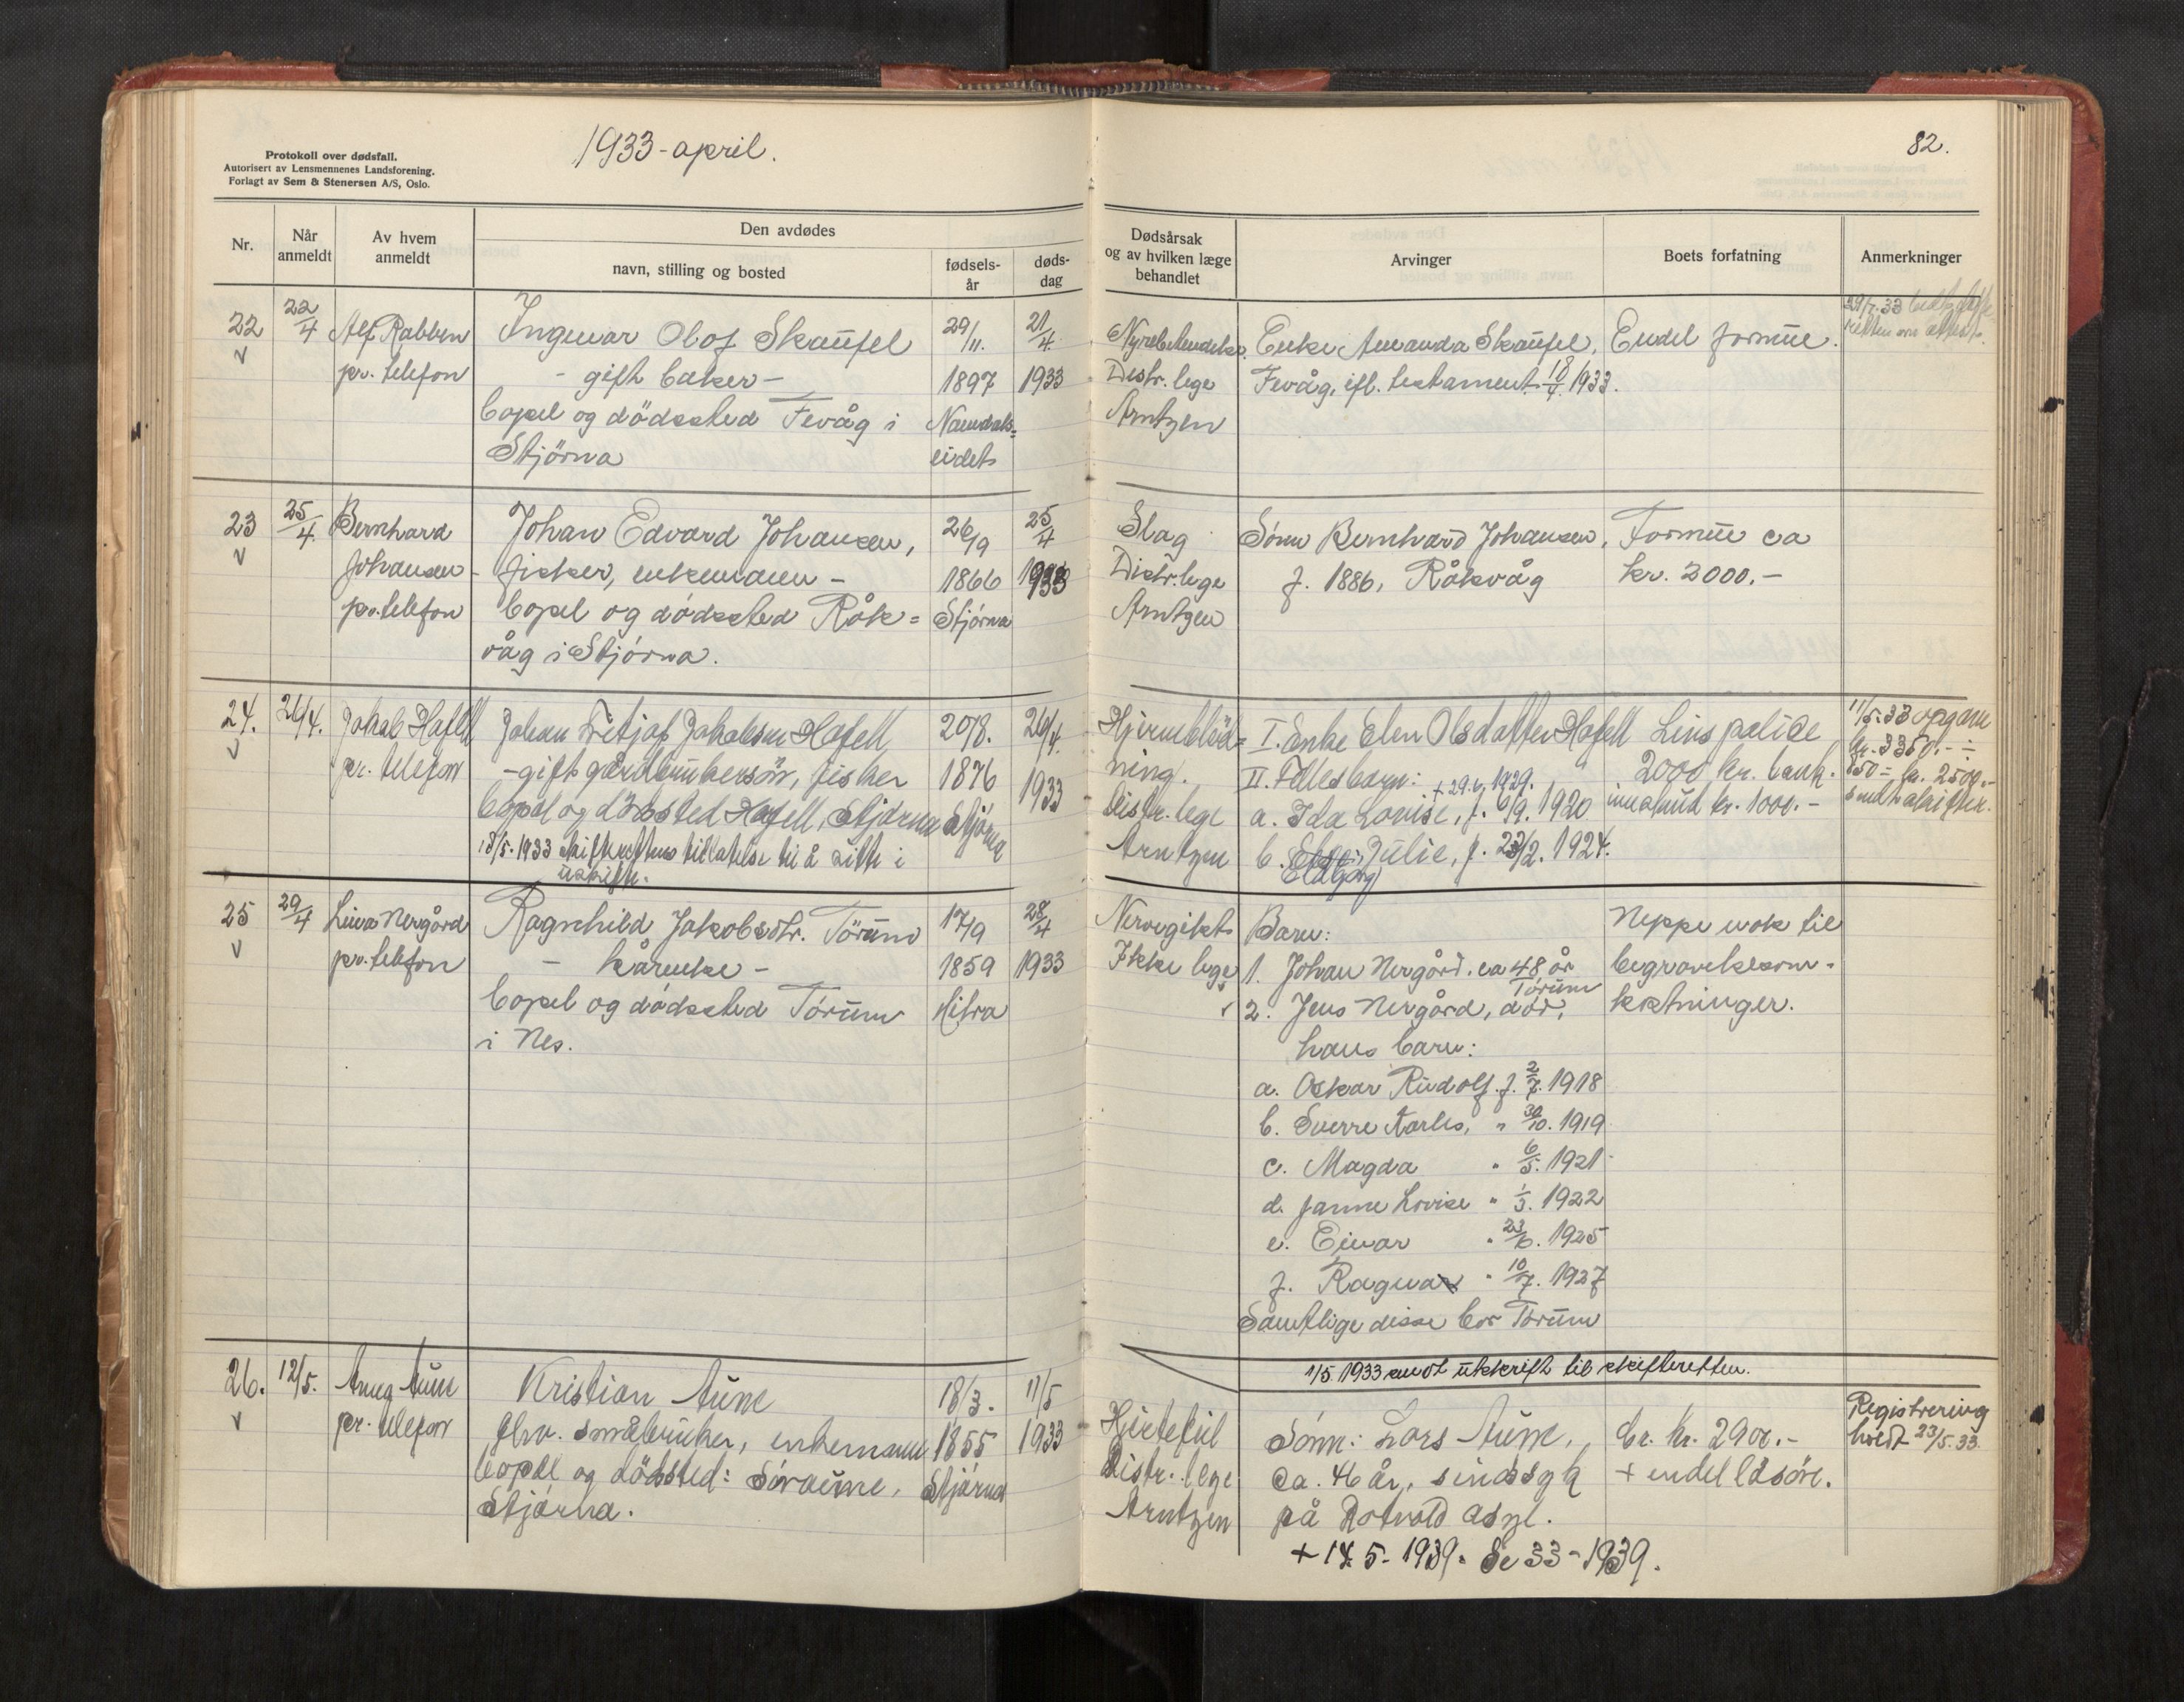 Protokoll over dødsfall.
Autorisert av Lensmennenes Landsforening.
Forlagt av Sem & Stenersen A/S, Oslo.
1933-april.
82.
Nr.
Når anmeldt
Av hvem anmeldt
Den avdødes
navn, stilling og bosted
fødsels-år
døds-dag
Dødsårsak og av hvilken læge behandlet
Arvinger
Boets forfatning
Anmerkninger
22 v
22/4
Alf Rabben
pr. telefon
Ingvar Olof Skaufel
- gift baker -
bopel og dödssted Fevåg i
Stjörna
29/11.
1897
Namdals=
eidet
21/4.
1933
Nyrebetendelse.
Distr. lege
Arntzen
Enke Amanda Skaufel,
Fevåg, ifl. testament 18/4 1933.
Endel formue.
29/7.33
23 v
25/4.
Bernhard
Johansen
pr. telefon
Johan Edvard Johansen,
- fisker, enkemann -
bopel og dödssted Råk=
våg i Stjörna.
26/9
1866
Stjörna
25/4
1933
Slag
Distr. lege
Arntzen
Sönn Bernhard Johansen,
f. 1886, Råkvåg
Formue ca
kr. 2000.-
24. v
26/4.
Jakob Hafell
pr. telefon
Johan Fritjof Jakobsen Hafell
- gift gårdbrukersön, fisker
bopel og dödssted Hafell, Stjörna
18/5-1933 skifterettens tillatelse til å sitte i
uskifte.
20/8.
1876
Stjörna
26/4.
1933
Hjerneblöd=
ning.
Distr. lege
Arntzen
I. Enke Elen Olsdatter Hafell
II. Fellesbarn:
+ 29.4.1929.
a. Ida Louise, f. 6/9. 1920
b. Julie, f. 23/2. 1924.
Eldbjørg
Livspolise
2000 kr. bank-
innskud kr. 1000.-
11/5.33 opgave
kr. 3350.- ÷
850 = kr. 2500.-
25 v
29/4
Lina Nergård
pr. telefon
Ragnhild Jakobsdtr. Törum
- kårenke -
bopel og dödssted Törum
i Nes.
17/9
1859
Hitra
28/4
1933
Nervegikt
Ikke lege
Barn:
1. Johan Nergård. ca 48 år
Törum
2. Jens Nergård, död,
hans barn:
a. Oskar Rudolf. f. 2/7. 1918
b. Sverre Karles, " 30/10. 1919
c. Magda " 6/5. 1921
d. Janne Lovise " 1/3. 1922
e. Einar " 23/6. 1925
f. Ragna " 10/7. 1927
Samtlige disse bor Törum
Neppe nok til
begravelsesom-
kostninger.
1/5. 1933 sendt utskrift til skifteretten.
26. v
12/5.
Anna Aune
pr. telefon
Kristian Aune
fhv. småbruker, enkemann
bopel og dödssted: Söraune,
Stjörna.
18/3.
1855
Stjörna
11/5
1933
Hjertefeil
Distr. lege
Arntzen
Sönn: Lars Aune,
ca. 46 år, sindssyk
på Rotvold asyl.
+ 14.5-1939. Se 33-1939.
br. kr. 2900.-
+ endel lösöre.
Registrering
holdt 23/5.33.